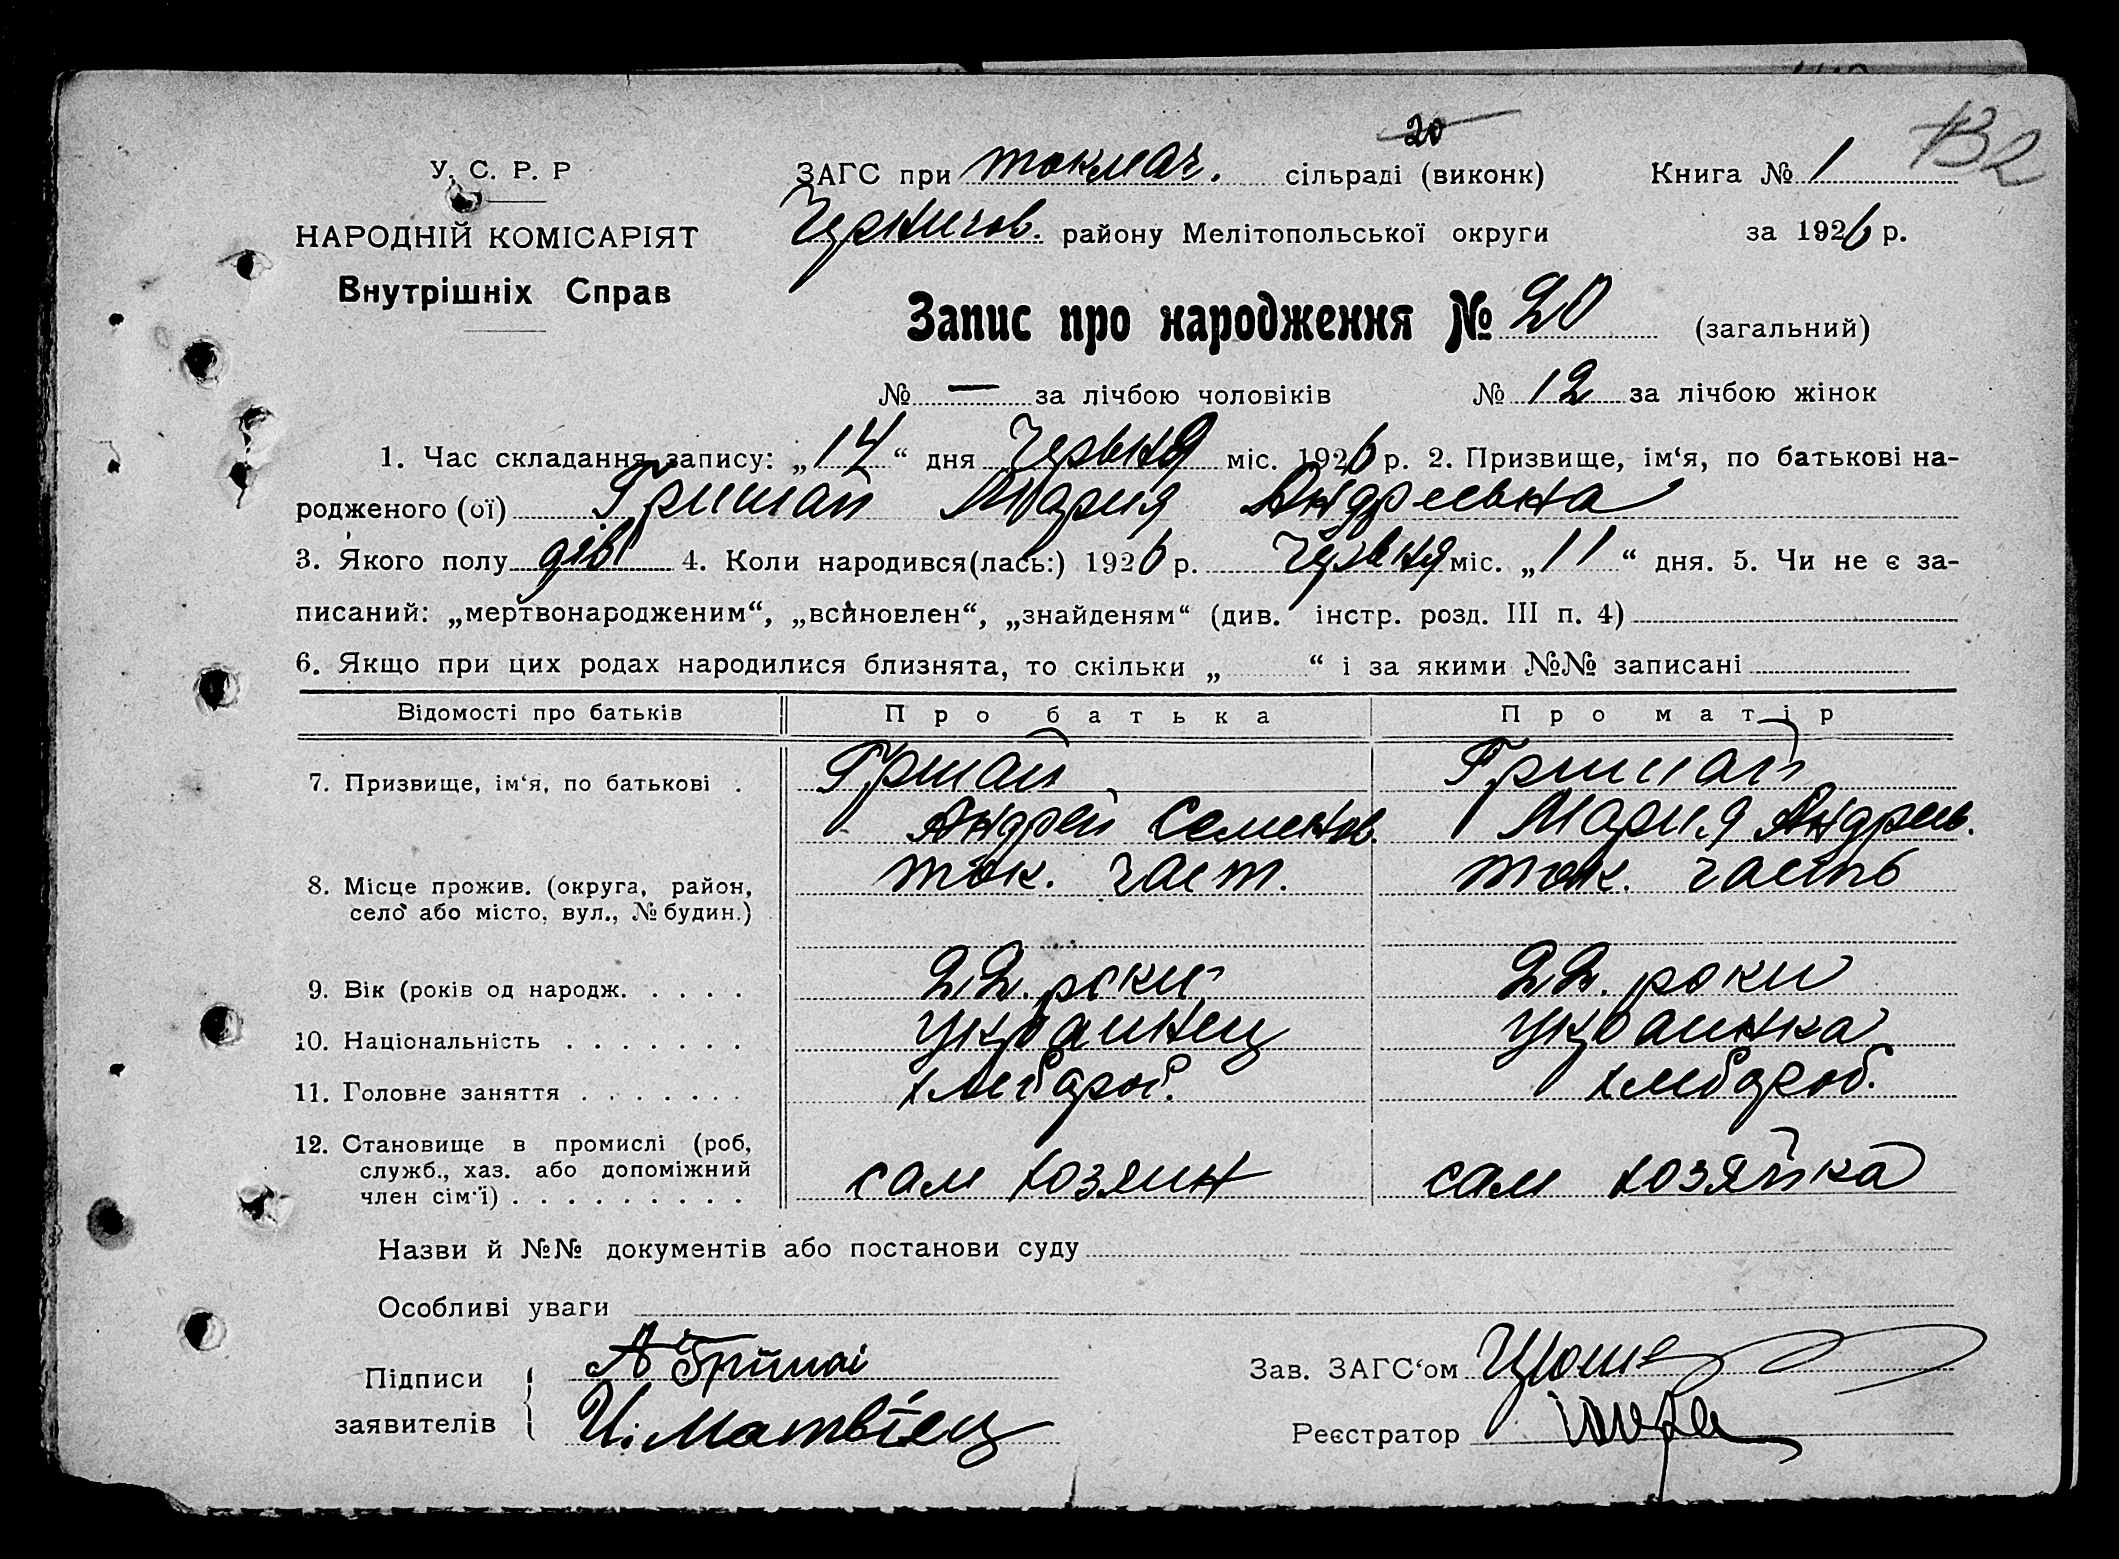 20
У. С. Р. Р
ЗАГС при токмач. сільраді (виконк) Книга № 1 132
НАРОДНІЙ КОМІСАРІЯТ
Чернигов. району Мелітопольської округи за 1926 р.
Внутрішніх Справ
Запис про народження № 20 (загальний)
№ — за лічбою чоловіків № 12 за лічбою жінок
1. Час складання запису: „14“ дня Червня міс. 1926 р. 2. Призвище, ім‘я, по батькові на-
родженого (ої) Гришай Мария Андреевна
3. Якого полу дів 4. Коли народився(лась:) 1926 р. Червня міс. „11“ дня. 5. Чи не є за-
писаний: „мертвонародженим“, „всиновлен“, „знайденям“ (див. інстр. розд. III п. 4)
6. Якщо при цих родах народилися близнята, то скільки „ “ і за якими №№ записані
Відомості про батьків Про батька Про матір
7. Призвище, ім‘я, по батькові . Гришай Гришай
Андрей Семенов. Мария Андреев.
8. Місце прожив. (округа, район, ток. част. ток. часть
село або місто, вул., № будин.)
9. Вік (років од народж. . . . . 22. роки 22. роки
10. Національність . . . . . . . Украинец Украинка
11. Головне заняття . . . . . . . хлебороб. хлебороб.
12. Становище в промислі (роб,
служб., хаз. або допоміжний сам хозяин сам хозяйка
член сім‘ї) . . . . . . . . .
Назви й №№ документів або постанови суду
Особливі уваги
Підписи А Грішаі Зав. ЗАГС‘ом
заявителів И. Матвіец Реєстратор